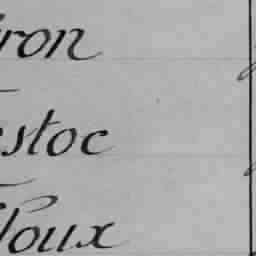 ron
stoc
loux